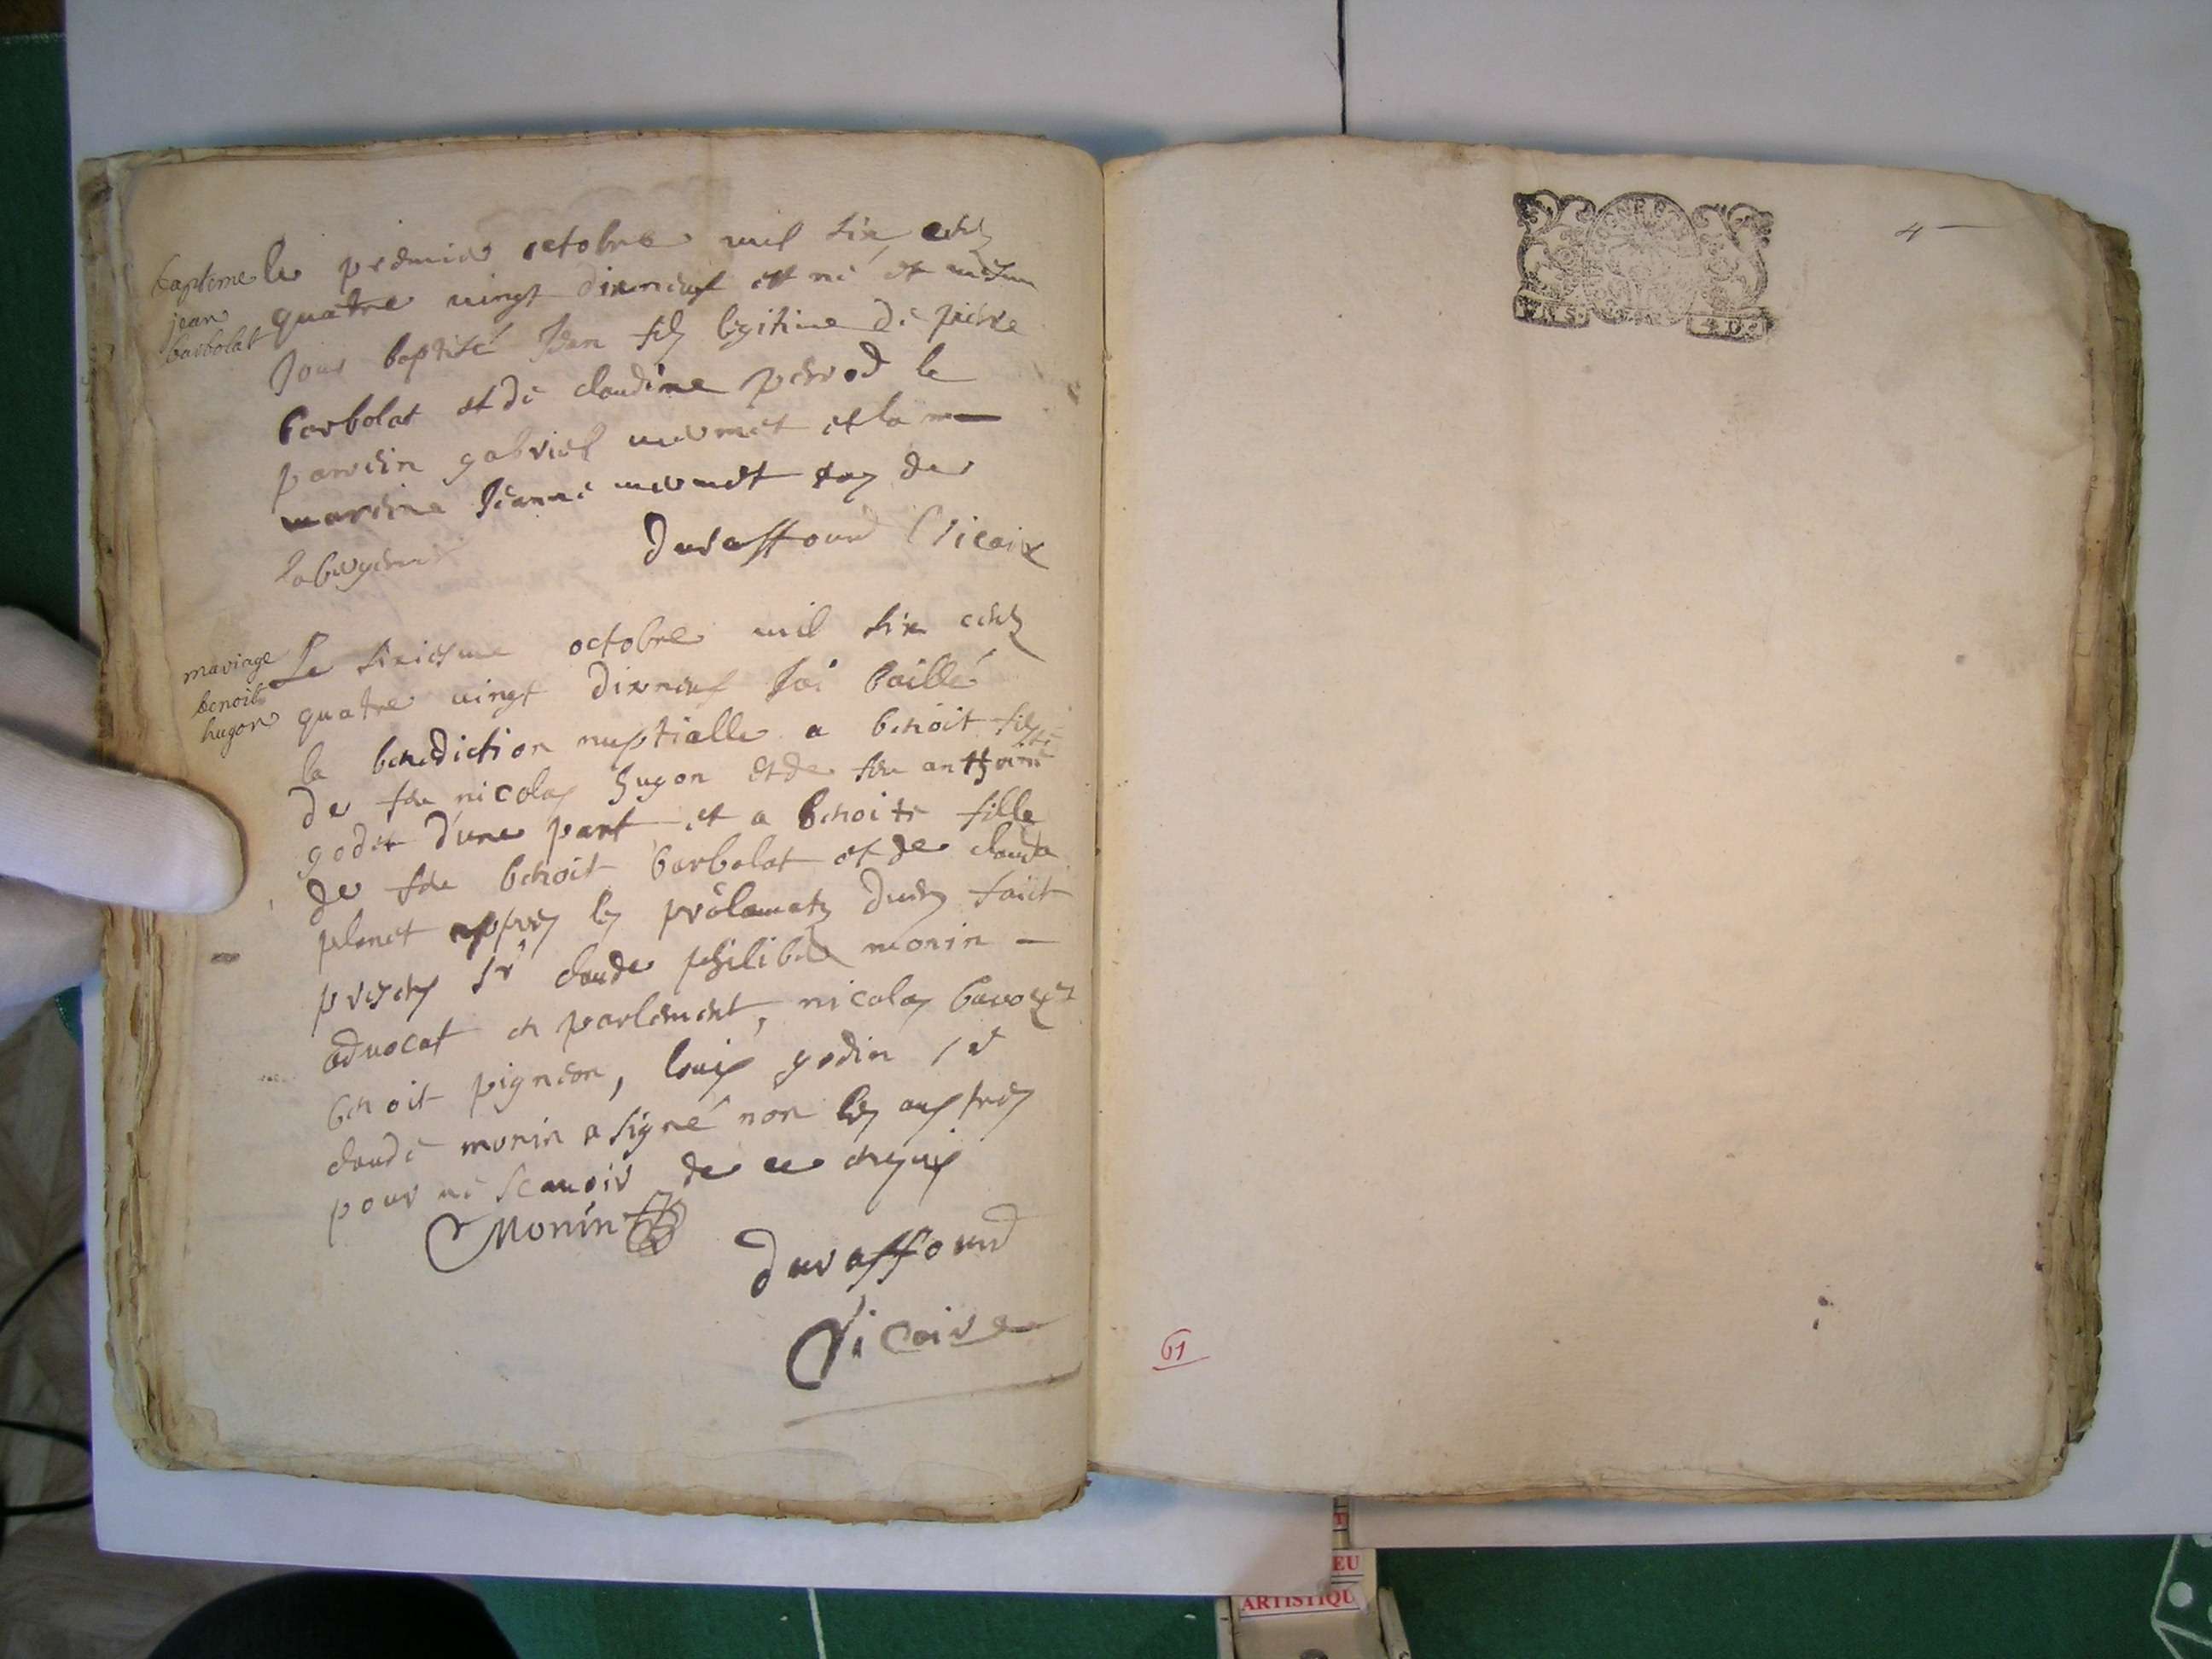 bapteme
jean
barbolat
le premier octobre mil six cens
quatre vingt dixneuf est né et mesme
Jour baptisé Jean fils legitime de pierre
barbolat et de claudine perrod le
parrein gabriel mermet et la m
mareine Jeanne mermet tous de
Duraffourd Vicaire
mariage
benoit
hugon
Le sixiesme octobre mil six cens
quatre vingt dixneuf J'ai baillé
la benediction nuptialle a benoit fils
de feu nicolas hugon et de feu anthoine
godet d'une part et a benoite fille
de feu benoit barbolat et de clauda
planet apprès les faict
presens Sr claude philibert monin
advocat en parlement, nicolas
benoit pigneon, louis godin
claude monin a signé non les aultres
pour ne scavoir de ce enquis
Monin
Duraffourd
Vicaire
4
61
EU
ARTISTIQU